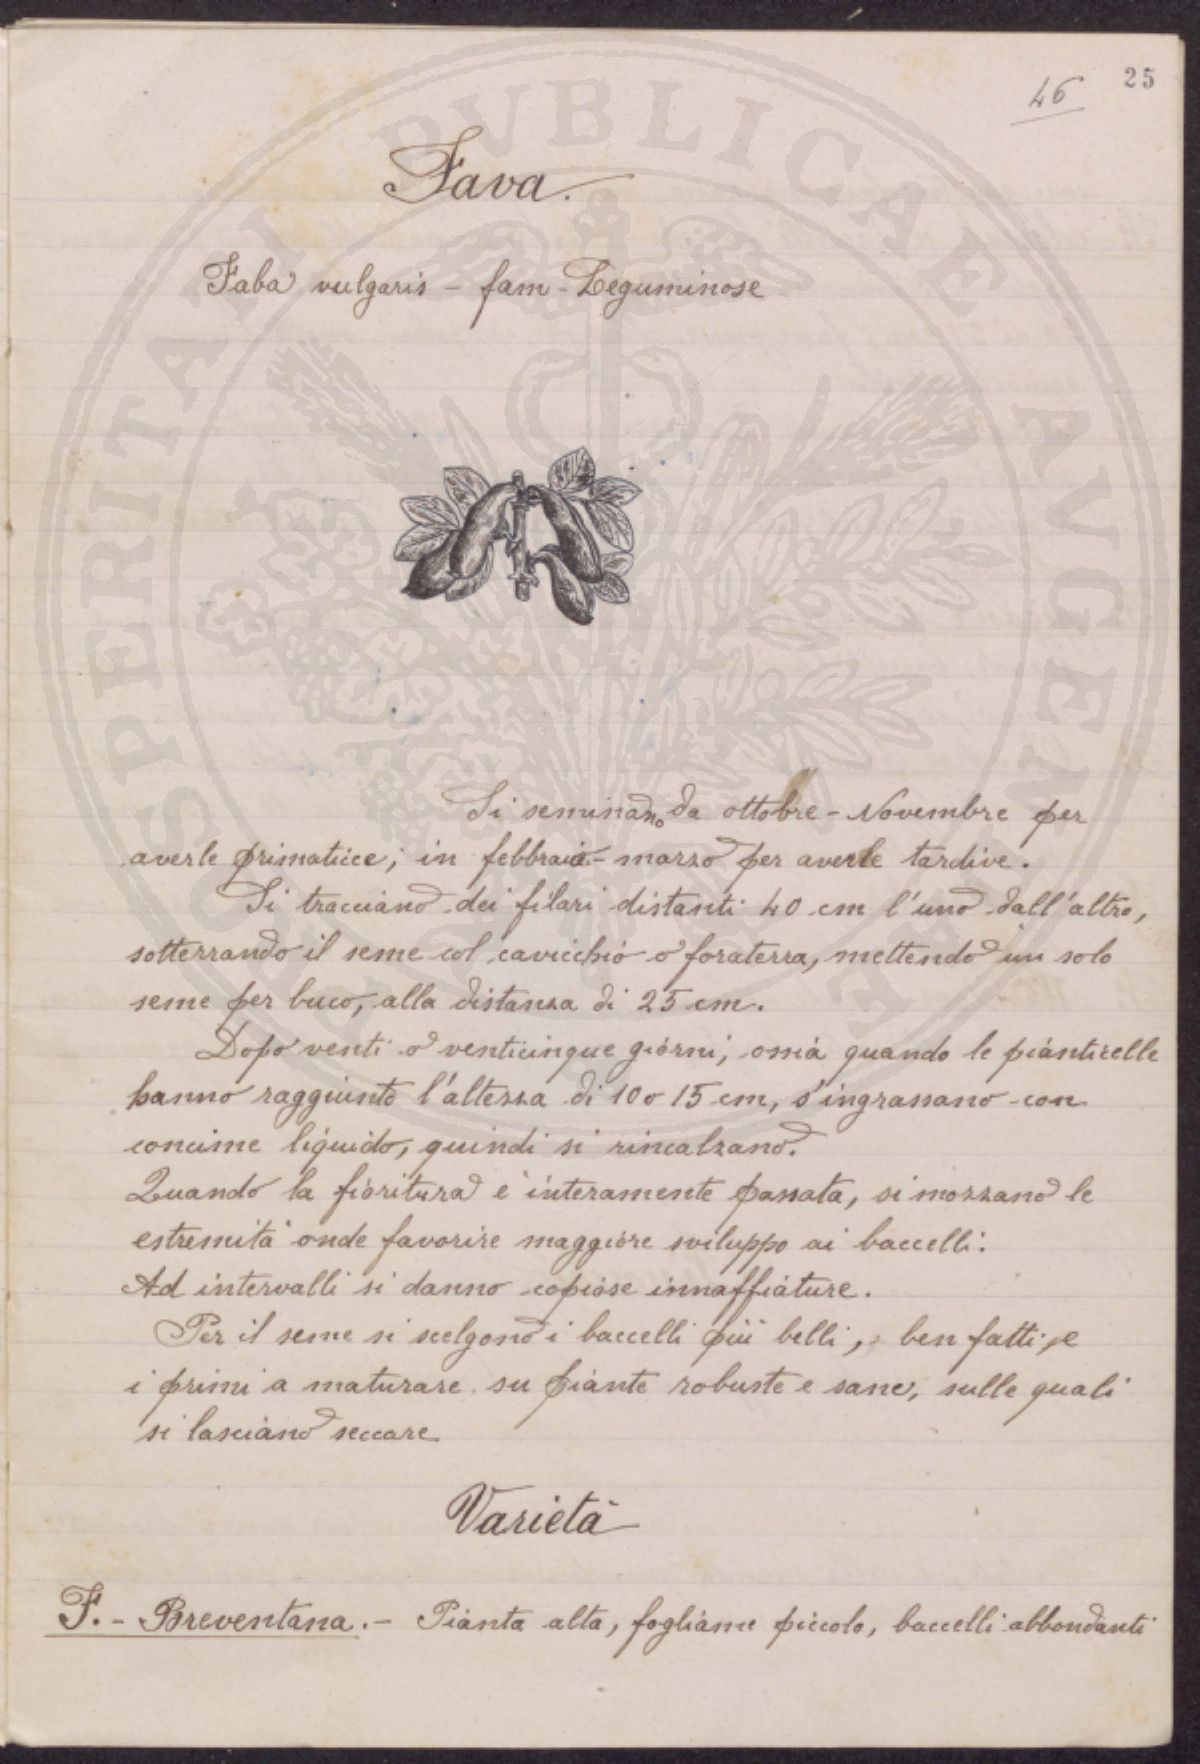 46
25
Fava.
Faba vulgaris - fam - Leguminose
Si seminano da ottobre - Novembre per
averle primaticce; in febbraio - marzo per averle tardive.
Si tracciano dei filari distanti 40 cm l'uno dall'altro,
sotterrando il seme col cavicchio o foraterra, mettendo un solo
seme per buco, alla distanza di 25 cm.
Dopo venti o venticinque giorni, ossia quando le pianticelle
hanno raggiunto l'altezza di 10 o 15 cm, s'ingrassano con
concime liquido, quindi si rincalzano.
Quando la fioritura è interamente passata, si mozzano le
estremità onde favorire maggiore sviluppo ai baccelli.
Ad intervalli si danno copiose innaffiature.
Per il seme si scelgono i baccelli più belli, ben fatti, e
i primi a maturare su piante robuste e sane, sulle quali
si lasciano seccare
Varietà
F. - Breventana. - Pianta alta, fogliame piccolo, baccelli abbondanti
PUBLICAE
AUGEN
SPERITATI